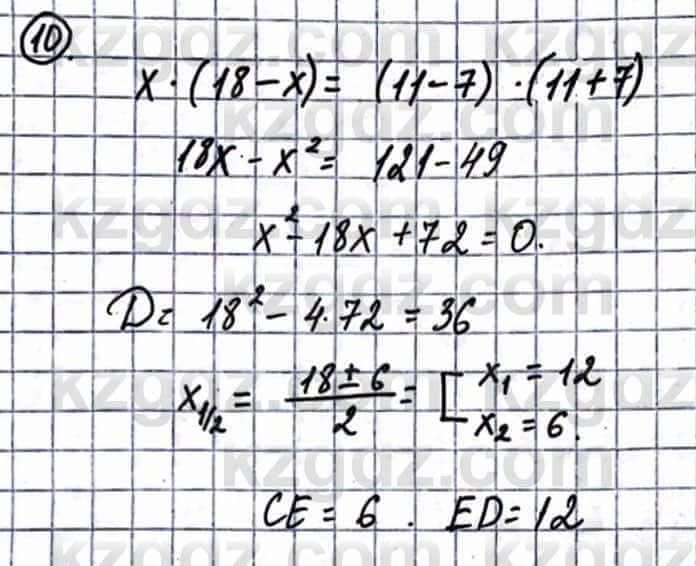 10.
x · (18 - x) = (11 - 7) · (11 + 7)
18x - x² = 121 - 49
x² - 18x + 72 = 0.
D = 18² - 4 · 72 = 36
x₁/₂ = (18 ± 6)/2 = [ x₁ = 12
x₂ = 6.
CE = 6 . ED = 12
kzgdz.com